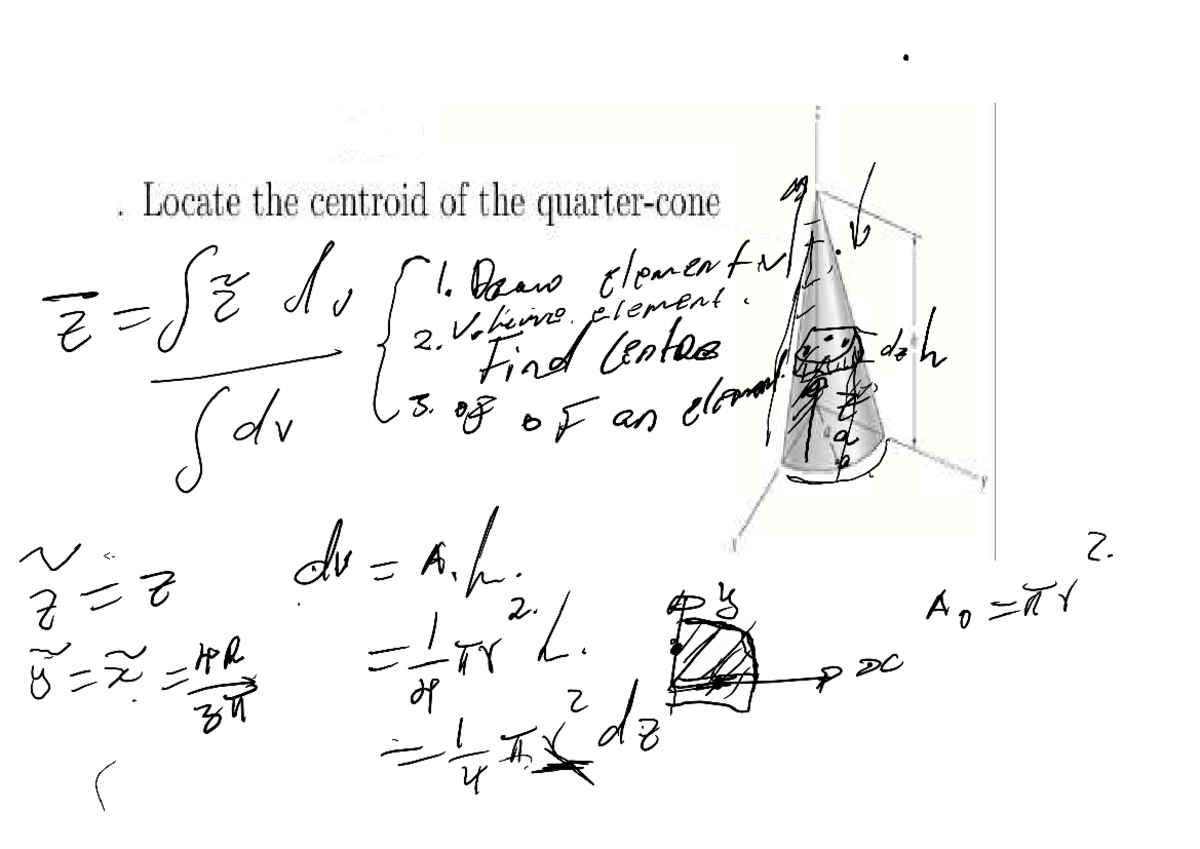 . Locate the centroid of the quarter-cone
z̄ = ∫ z̃ dv / ∫ dv
1. Draw element
2. Volume element.
Find Centre
3. of of an element.
dz h
z
a
y
z̃ = z
dv = A.h.
A₀ = πr².
= 1/4 πr² h.
y
ỹ = x̃ = 4R/3π
x
= 1/4 πr² dz